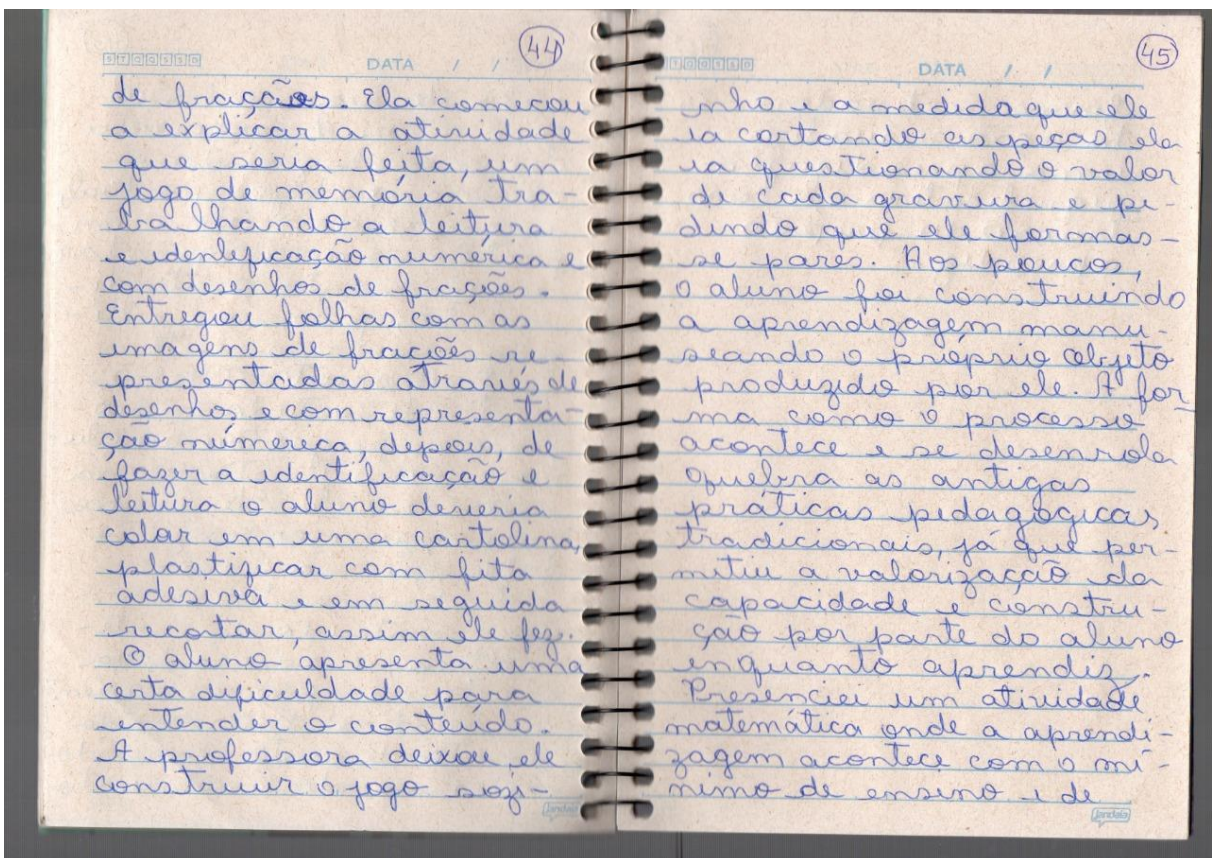 44
DATA / /
de frações. Ela começou
a explicar a atividade
que seria feita, um
jogo de memória tra-
balhando a leitura
e identificação numerica e
com desenhos de frações.
Entregou folhas com as
imagens de frações re-
presentadas através de
desenhos e com representa-
ção númerica, depois, de
fazer a identificação e
leitura o aluno deveria
colar em uma cartolina,
plastificar com fita
adesiva e em seguida
recortar, assim ele fez.
O aluno apresenta uma
certa dificuldade para
entender o conteúdo.
A professora deixou ele
construir o jogo sozi-
jandaia
45
DATA / /
nho e a medida que ele
ia cortando as peças ela
ia questionando o valor
de cada gravura e pe-
dindo que ele formas-
se pares. Aos poucos,
o aluno foi construindo
a aprendizagem manu-
seando o próprio objeto
produzido por ele. A for-
ma como o processo
acontece e se desenrola
quebra as antigas
práticas pedagógicas
tradicionais, já que per-
mitiu a valorização da
capacidade e constru-
ção por parte do aluno
enquanto aprendiz.
Presenciei um atividade
matemática onde a aprendi-
zagem acontece com o mí-
nimo de ensino e de
jandaia